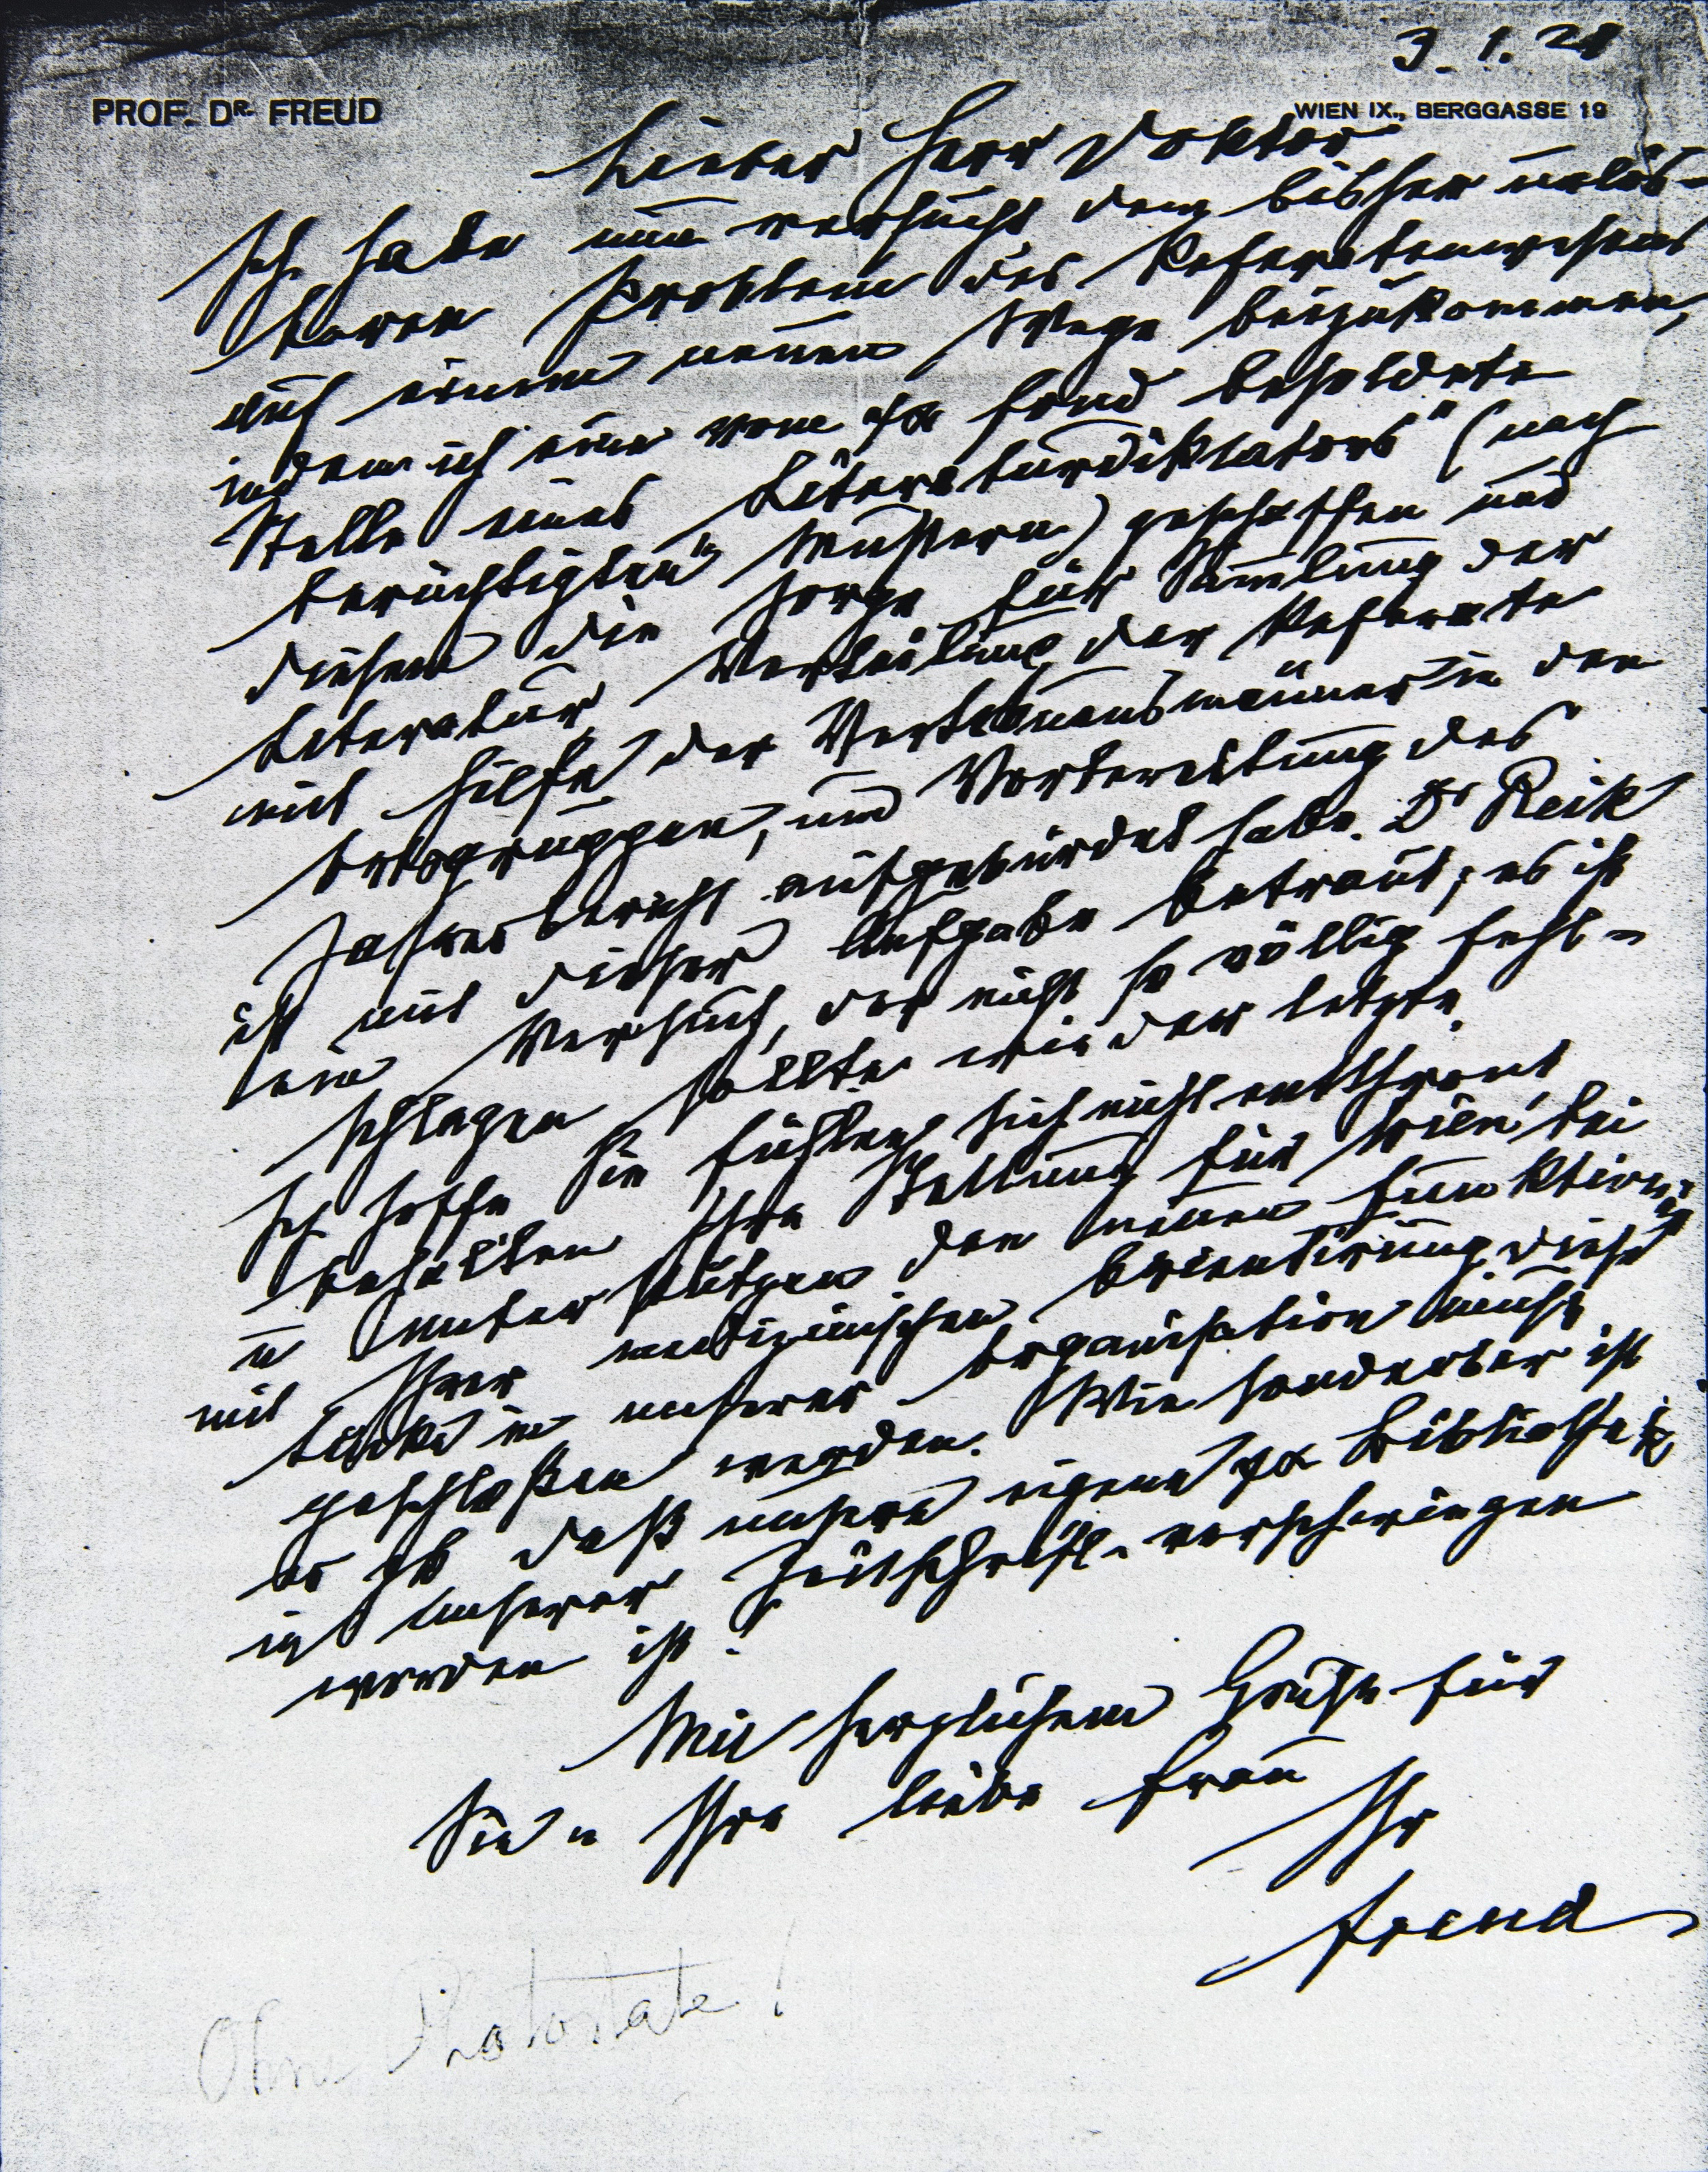 3. 1. 21
PROF. DR. FREUD
WIEN IX., BERGGASSE 19
Lieber Herr Doktor
Ich habe nun versucht dem bisher unlös-
baren Problem des Referatenwesens
auf einem neuen Wege beizukommen,
indem ich eine vom ψα Fond besoldete
Stelle eines „Literaturdiktators" (nach
berüchtigten Mustern) geschaffen und
diesem die Sorge für Sammlung der
Literatur, Verteilung der Referate
mit Hilfe der Vertrauensmänner in den
Ortsgruppen, und Vorbereitung des
Jahresbericht aufgebürdet habe. Dr Reik
ist mit dieser Aufgabe betraut; es ist
ein Versuch, der nicht so völlig fehl-
schlagen sollte wie der letzte.
Ich hoffe Sie fühlen sich nicht entthront
behalten Ihre Stellung für Wien bei
u unterstützen den neuen Funktionär
mit Ihrer medizinischen Orientirung, diese
Lücke in unserer Organisation muß
geschloßen werden. Wie sonderbar ist
es zB daß unsere eigene ψα Bibliothek
in unserer Zeitschrift verschwiegen
worden ist!
Mit herzlichem Gruß für
Sie u Ihre liebe Frau
Ihr
Freud
Ohne Photostate!